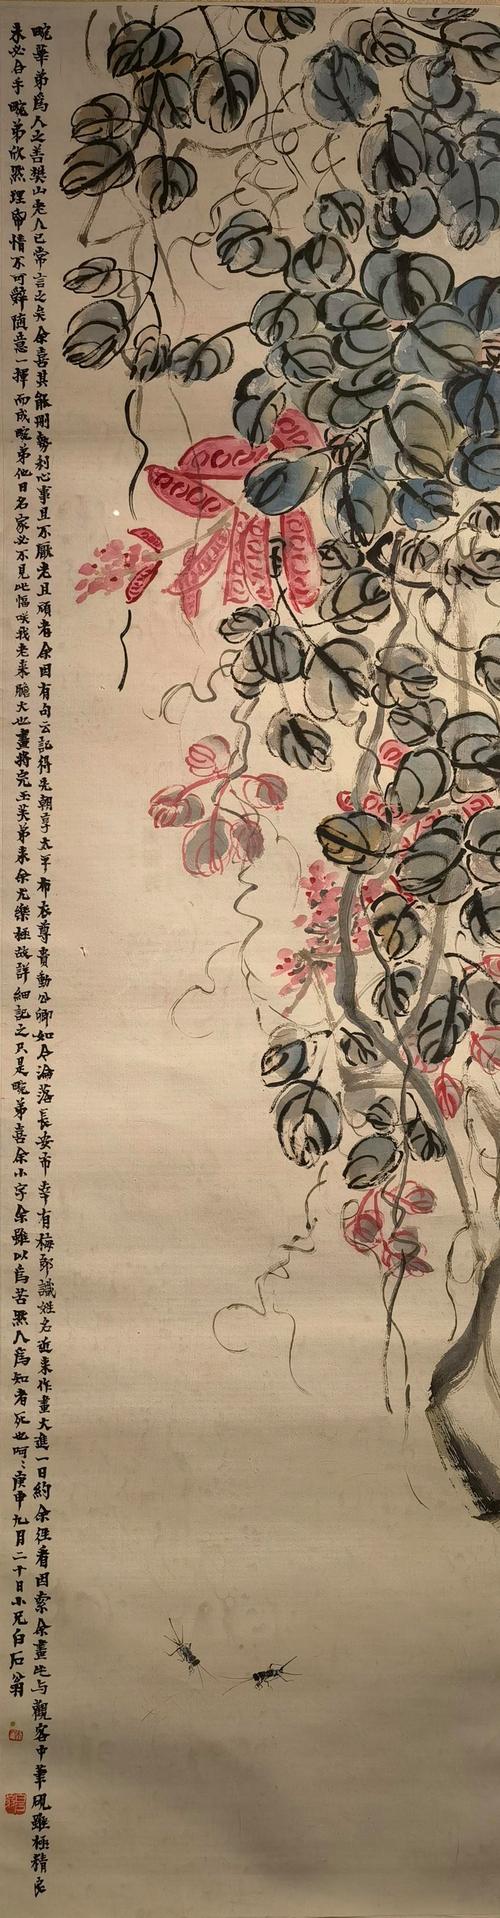 畹華弟為人之善樊山老人已常言之矣余喜其能刪勢利心事且不厭老且頑者余因有句云記得先朝享太平布衣尊貴動公卿如今淪落長安市幸有梅郎識姓名近來作畫大進一日約余往看因索余畫先與觀客中筆硯雖極精良
未必合手畹弟欣然理帋情不可辭隨意一揮而成畹弟他日名家必不見此幅咲我老來膽大也畫將完玉芙弟來余尤樂極故詳細記之只是畹弟喜余小字余雖以為苦然人為知者死也呵〻庚申九月二十日小兄白石翁